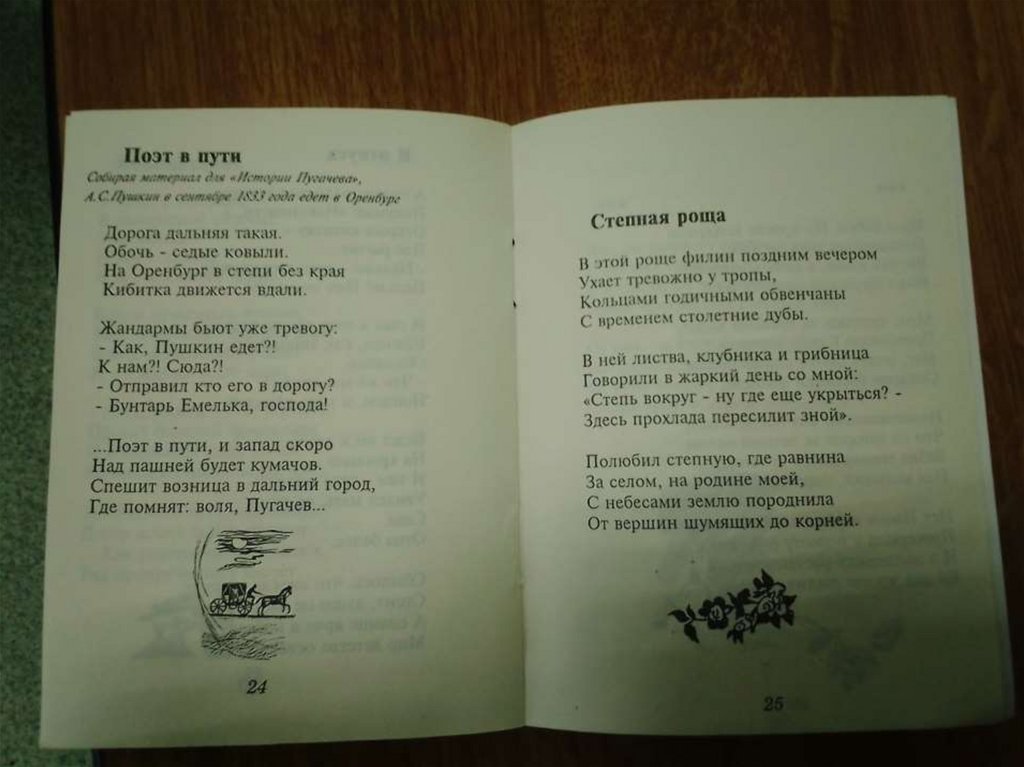 Поэт в пути
Собирая материал для «Истории Пугачева»,
А.С.Пушкин в сентябре 1833 года едет в Оренбург
Дорога дальняя такая.
Обочь - седые ковыли.
На Оренбург в степи без края
Кибитка движется вдали.
Жандармы бьют уже тревогу:
- Как, Пушкин едет?!
К нам?! Сюда?!
- Отправил кто его в дорогу?
- Бунтарь Емелька, господа!
...Поэт в пути, и запад скоро
Над пашней будет кумачов.
Спешит возница в дальний город,
Где помнят: воля, Пугачев...
24
Степная роща
В этой роще филин поздним вечером
Ухает тревожно у тропы,
Кольцами годичными обвенчаны
С временем столетние дубы.
В ней листва, клубника и грибница
Говорили в жаркий день со мной:
«Степь вокруг - ну где еще укрыться? -
Здесь прохлада пересилит зной».
Полюбил степную, где равнина
За селом, на родине моей,
С небесами землю породнила
От вершин шумящих до корней.
25